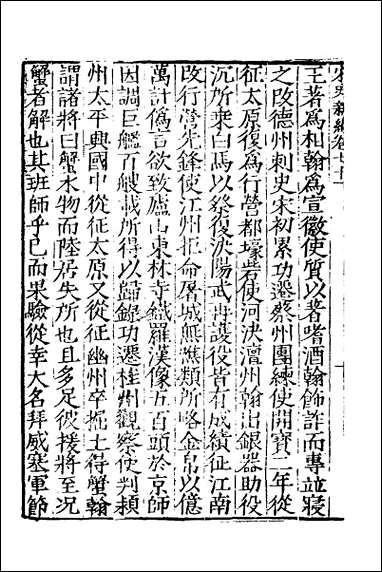 宋史新編卷七十一
王著爲相翰爲宣徽使質以著嗜酒翰飾詐而專並寢
之改德州刺史宋初累功遷蔡州團練使開寶二年從
征太原復爲行營都壕砦使河決澶州翰出銀器助役
沉所乘白馬以祭復決陽武再護役皆有成績征江南
改行營先鋒使江州拒命屠城無噍類所略金帛以億
萬計僞言欲致廬山東林寺鐵羅漢像五百頭於京師
因調巨艦百艘載所得以歸錄功遷桂州觀察使判潁
州太平興國中從征太原又從征幽州卒掘土得蟹翰
謂諸將曰蟹水物而陸居失所也且多足彼援將至况
蟹者解也其班師乎已而果驗從幸大名拜威塞軍節